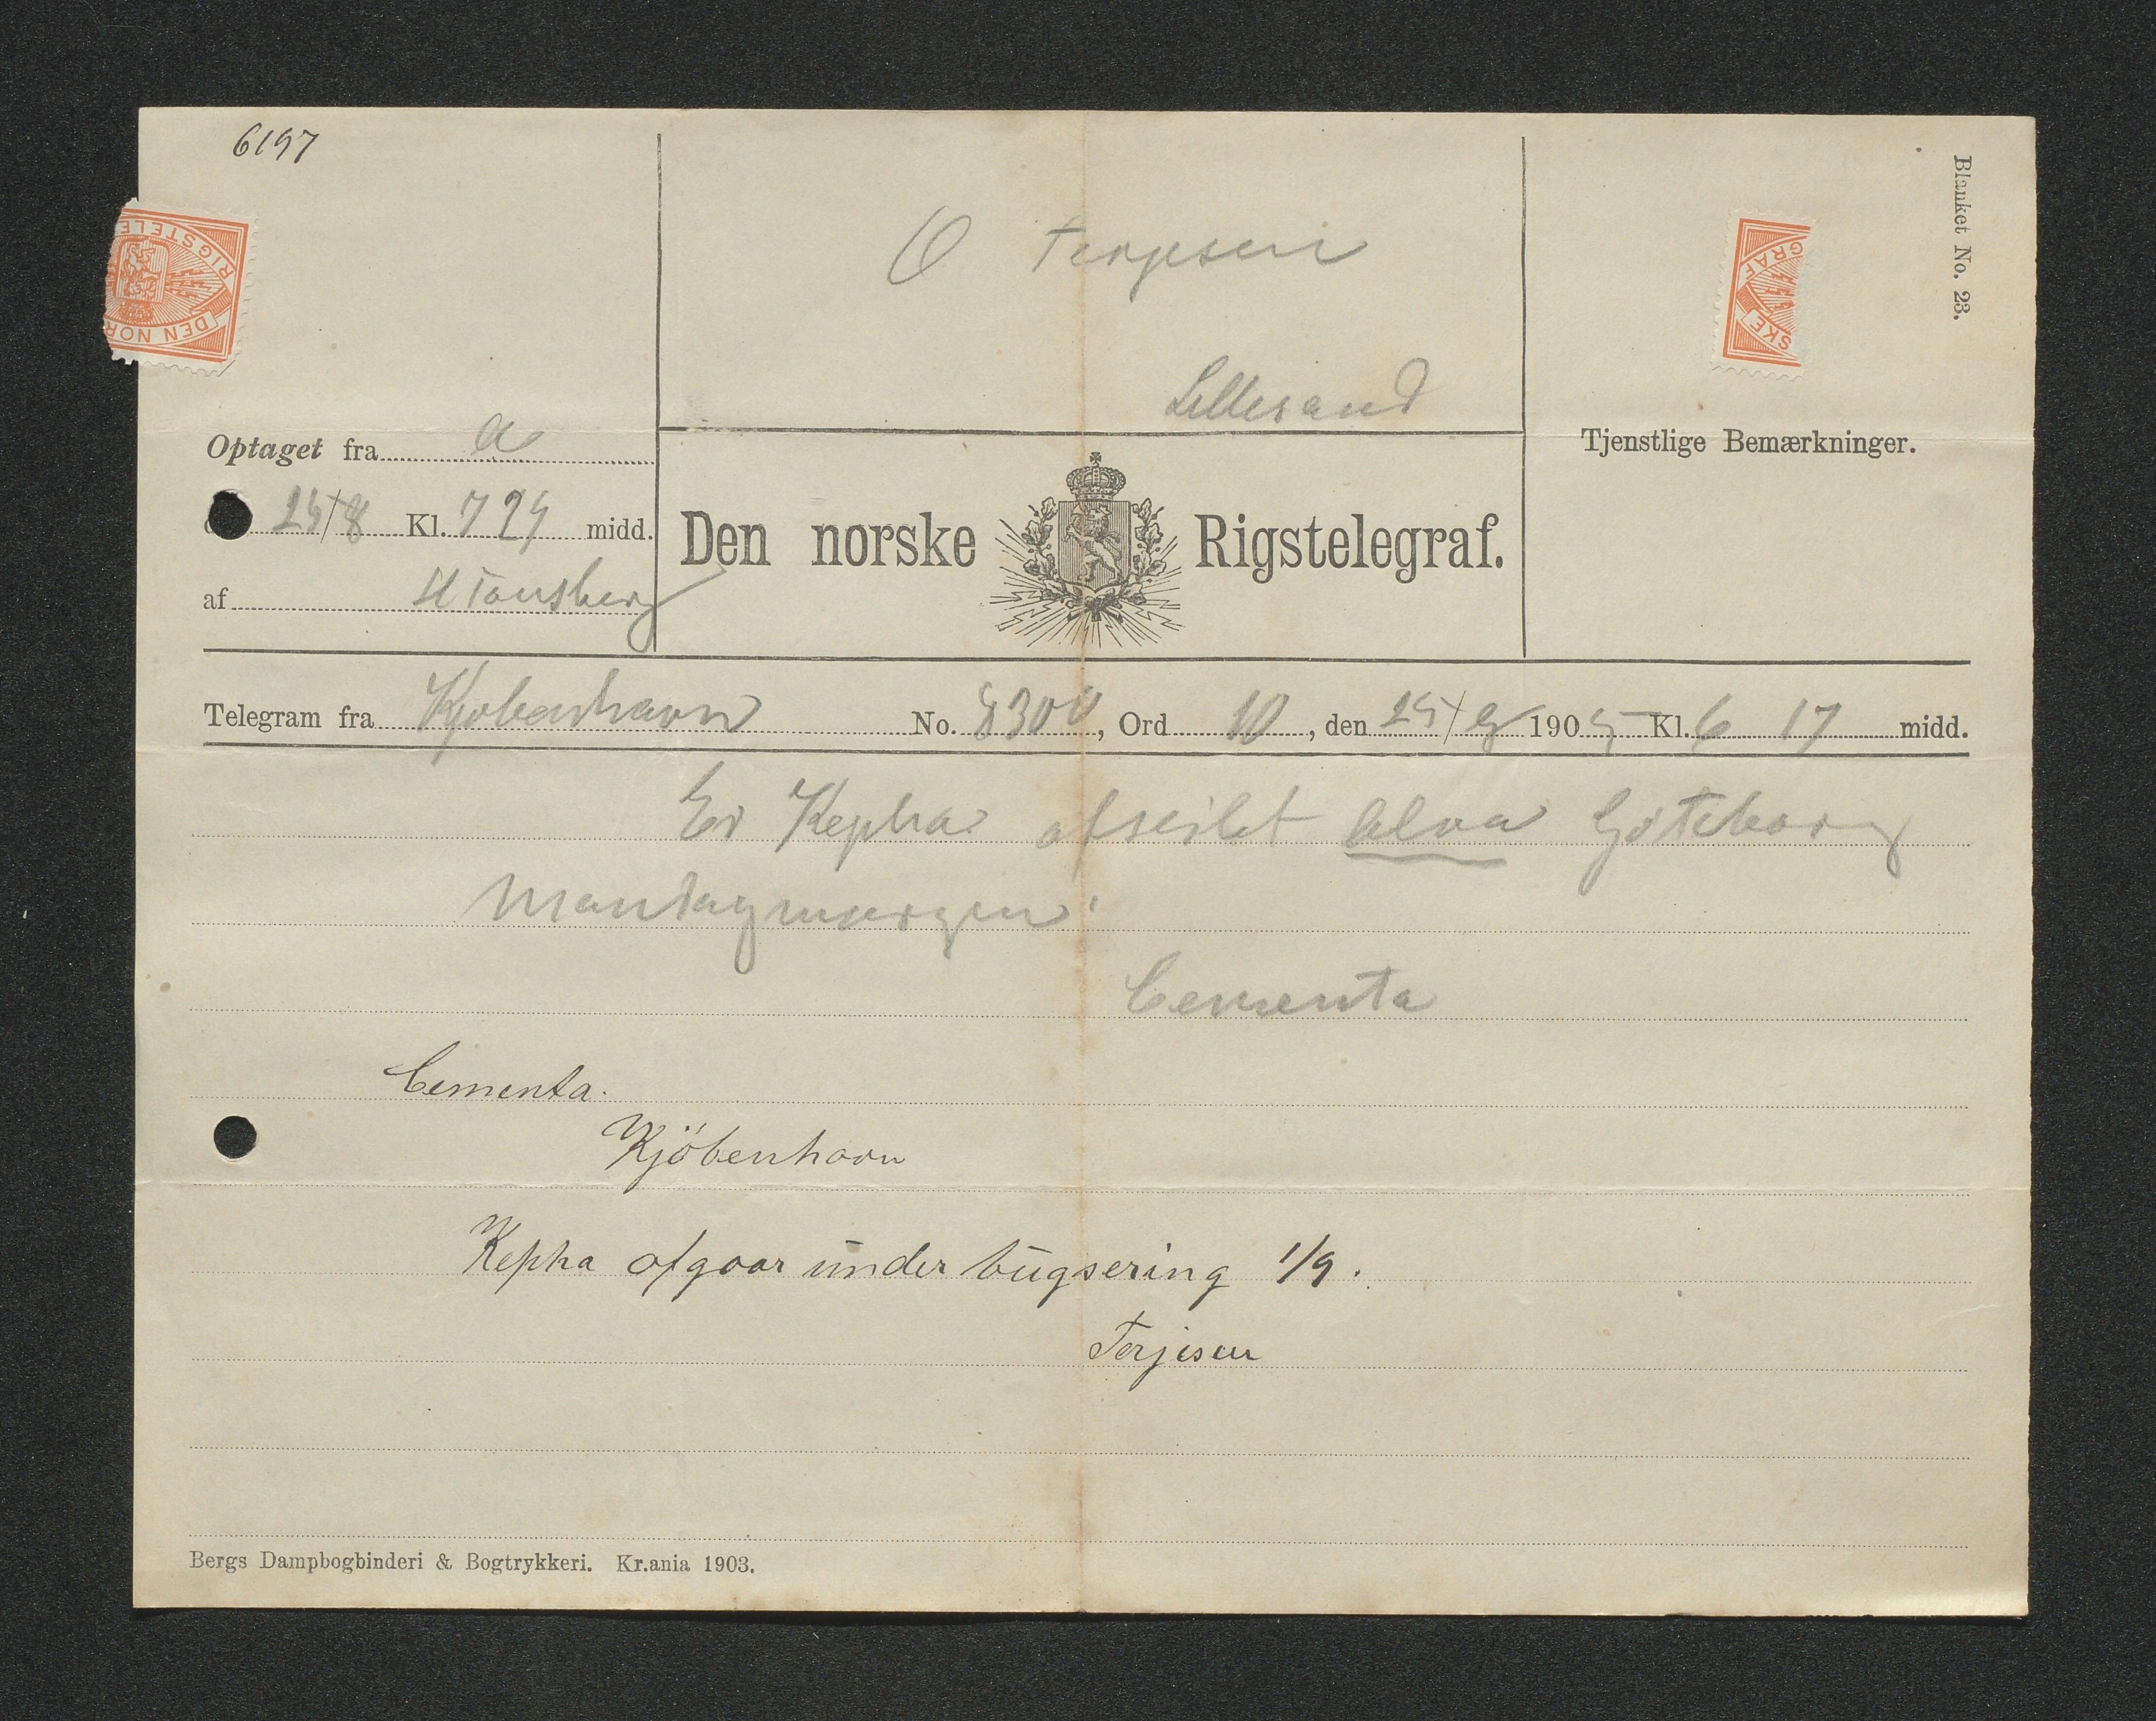 6197
Blanket No. 23.
RIGSTELE
DEN NOR
GRAF
SKE
O Terjesen
Lillesand
Optaget fra A
/8 Kl. 7 24 midd.
af H Tønsberg
Den norske Rigstelegraf.
Tjenstlige Bemærkninger.
Telegram fra Kjøbenhavn No. 8300, Ord 10, den /8 1905 Kl. 6 17 midd.
Er Kepha afseilet Alva Göteborg
mandagmorgen
Cementa
Cementa.
Kjöbenhavn
Kepha afgaar under bugsering 1/9.
Terjesen
Bergs Dampbogbinderi & Bogtrykkeri. Kr.ania 1903.